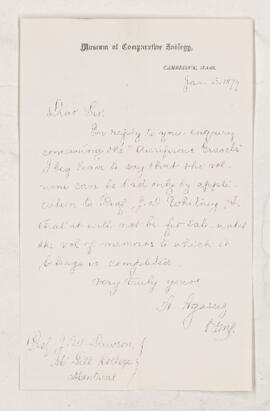 Museum of Comparative Zoölogy,
CAMBRIDGE, MASS.
Jan. 1879
Dear Sir.
In reply to your enquiry
concerning the "Auriferous Gravels"
I beg leave to say that the vol-
ume can be had only by appli-
cation to Prof. J.D. Whitney, &
that it will not be for sale until
the vol of memoirs to which it
belongs is completed.
Very truly yours
A. Agassiz
Prof J. W. Dawson,
McGill College
Montreal